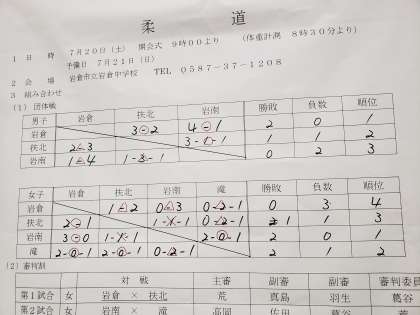 柔　道
1　日　時　7月20日（土）　開会式　9時00より　（体重計測　8時30分より）
予備日　7月21日（日）
2　会　場　岩倉市立岩倉中学校　TEL　0587-37-1208
3　組み合わせ
（1）団体戦
男子　岩倉　扶北　岩南　勝敗　負数　順位
岩倉　3-2　4-1　2　0　1
扶北　2-3　3-1-1　1　1　2
岩南　1-4　1-3-1　0　2　3
女子　岩倉　扶北　岩南　滝　勝敗　負数　順位
岩倉　1-2　0-3　0-2-1　0　3　4
扶北　2-1　1-1-1　0-2-1　1　3
岩南　3-0　1-1-1　2-0-1　2　0　1
滝　2-0-1　2-0-1　0-2-1　2　1　2
（2）審判割
対　戦　主審　副審　副審　審判委員
第1試合　女　岩倉　×　扶北　荒　真島　羽生　葛谷
第2試合　女　岩南　×　滝　高岡　佐田　葛谷